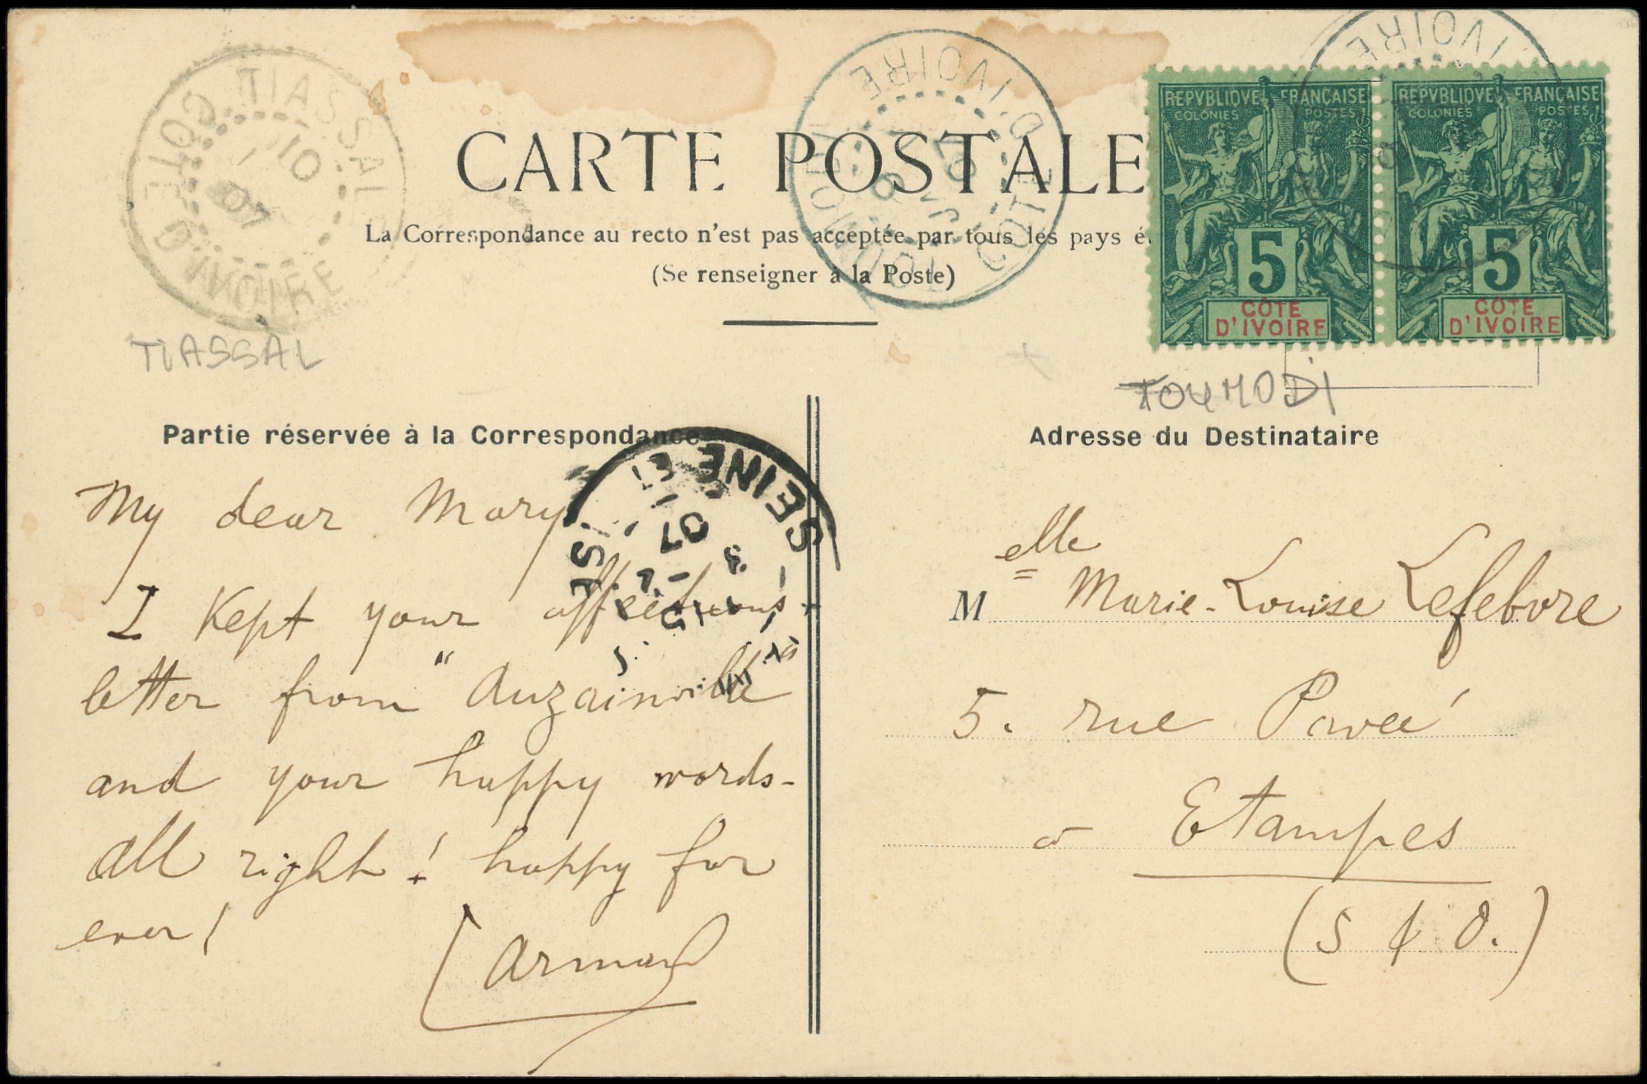 TIASSALE
10
07
COTE D'IVOIRE
TIASSAL
CARTE POSTALE
La Correspondance au recto n'est pas acceptée par tous les pays
(Se renseigner à la Poste)
TOUMODI
COTE D'IVOIRE
D'IVOIRE
REPVBLIQVE FRANÇAISE
COLONIES POSTES
5
CÔTE
D'IVOIRE
REPVBLIQVE FRANÇAISE
COLONIES POSTES
5
CÔTE
D'IVOIRE
TOUMODI
Partie réservée à la Correspondance
My dear Mary
I Kept your affectious
letter from "Auzainville
and your happy words-
All right! happy for
ever!
Armand
SEINE ET
07
Adresse du Destinataire
M elle Marie-Louise Lefebvre
5. rue Pavée
à Etampes
(S & O.)